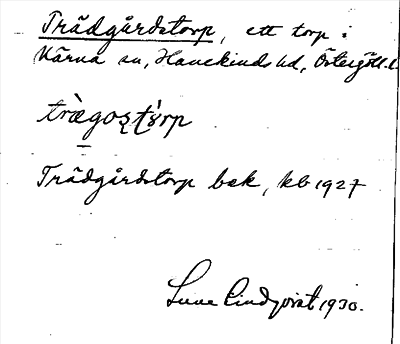 Trädgårdstorp, ett torp i
Kärna sn, Hanekinds hd, Östergötl. l.
trä̀gos̨tó̤rp
Trädgårdstorp bsk, kb 1927
Sune Lindqvist 1930.